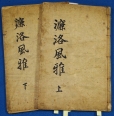 濂洛風雅 上
濂洛風雅 下